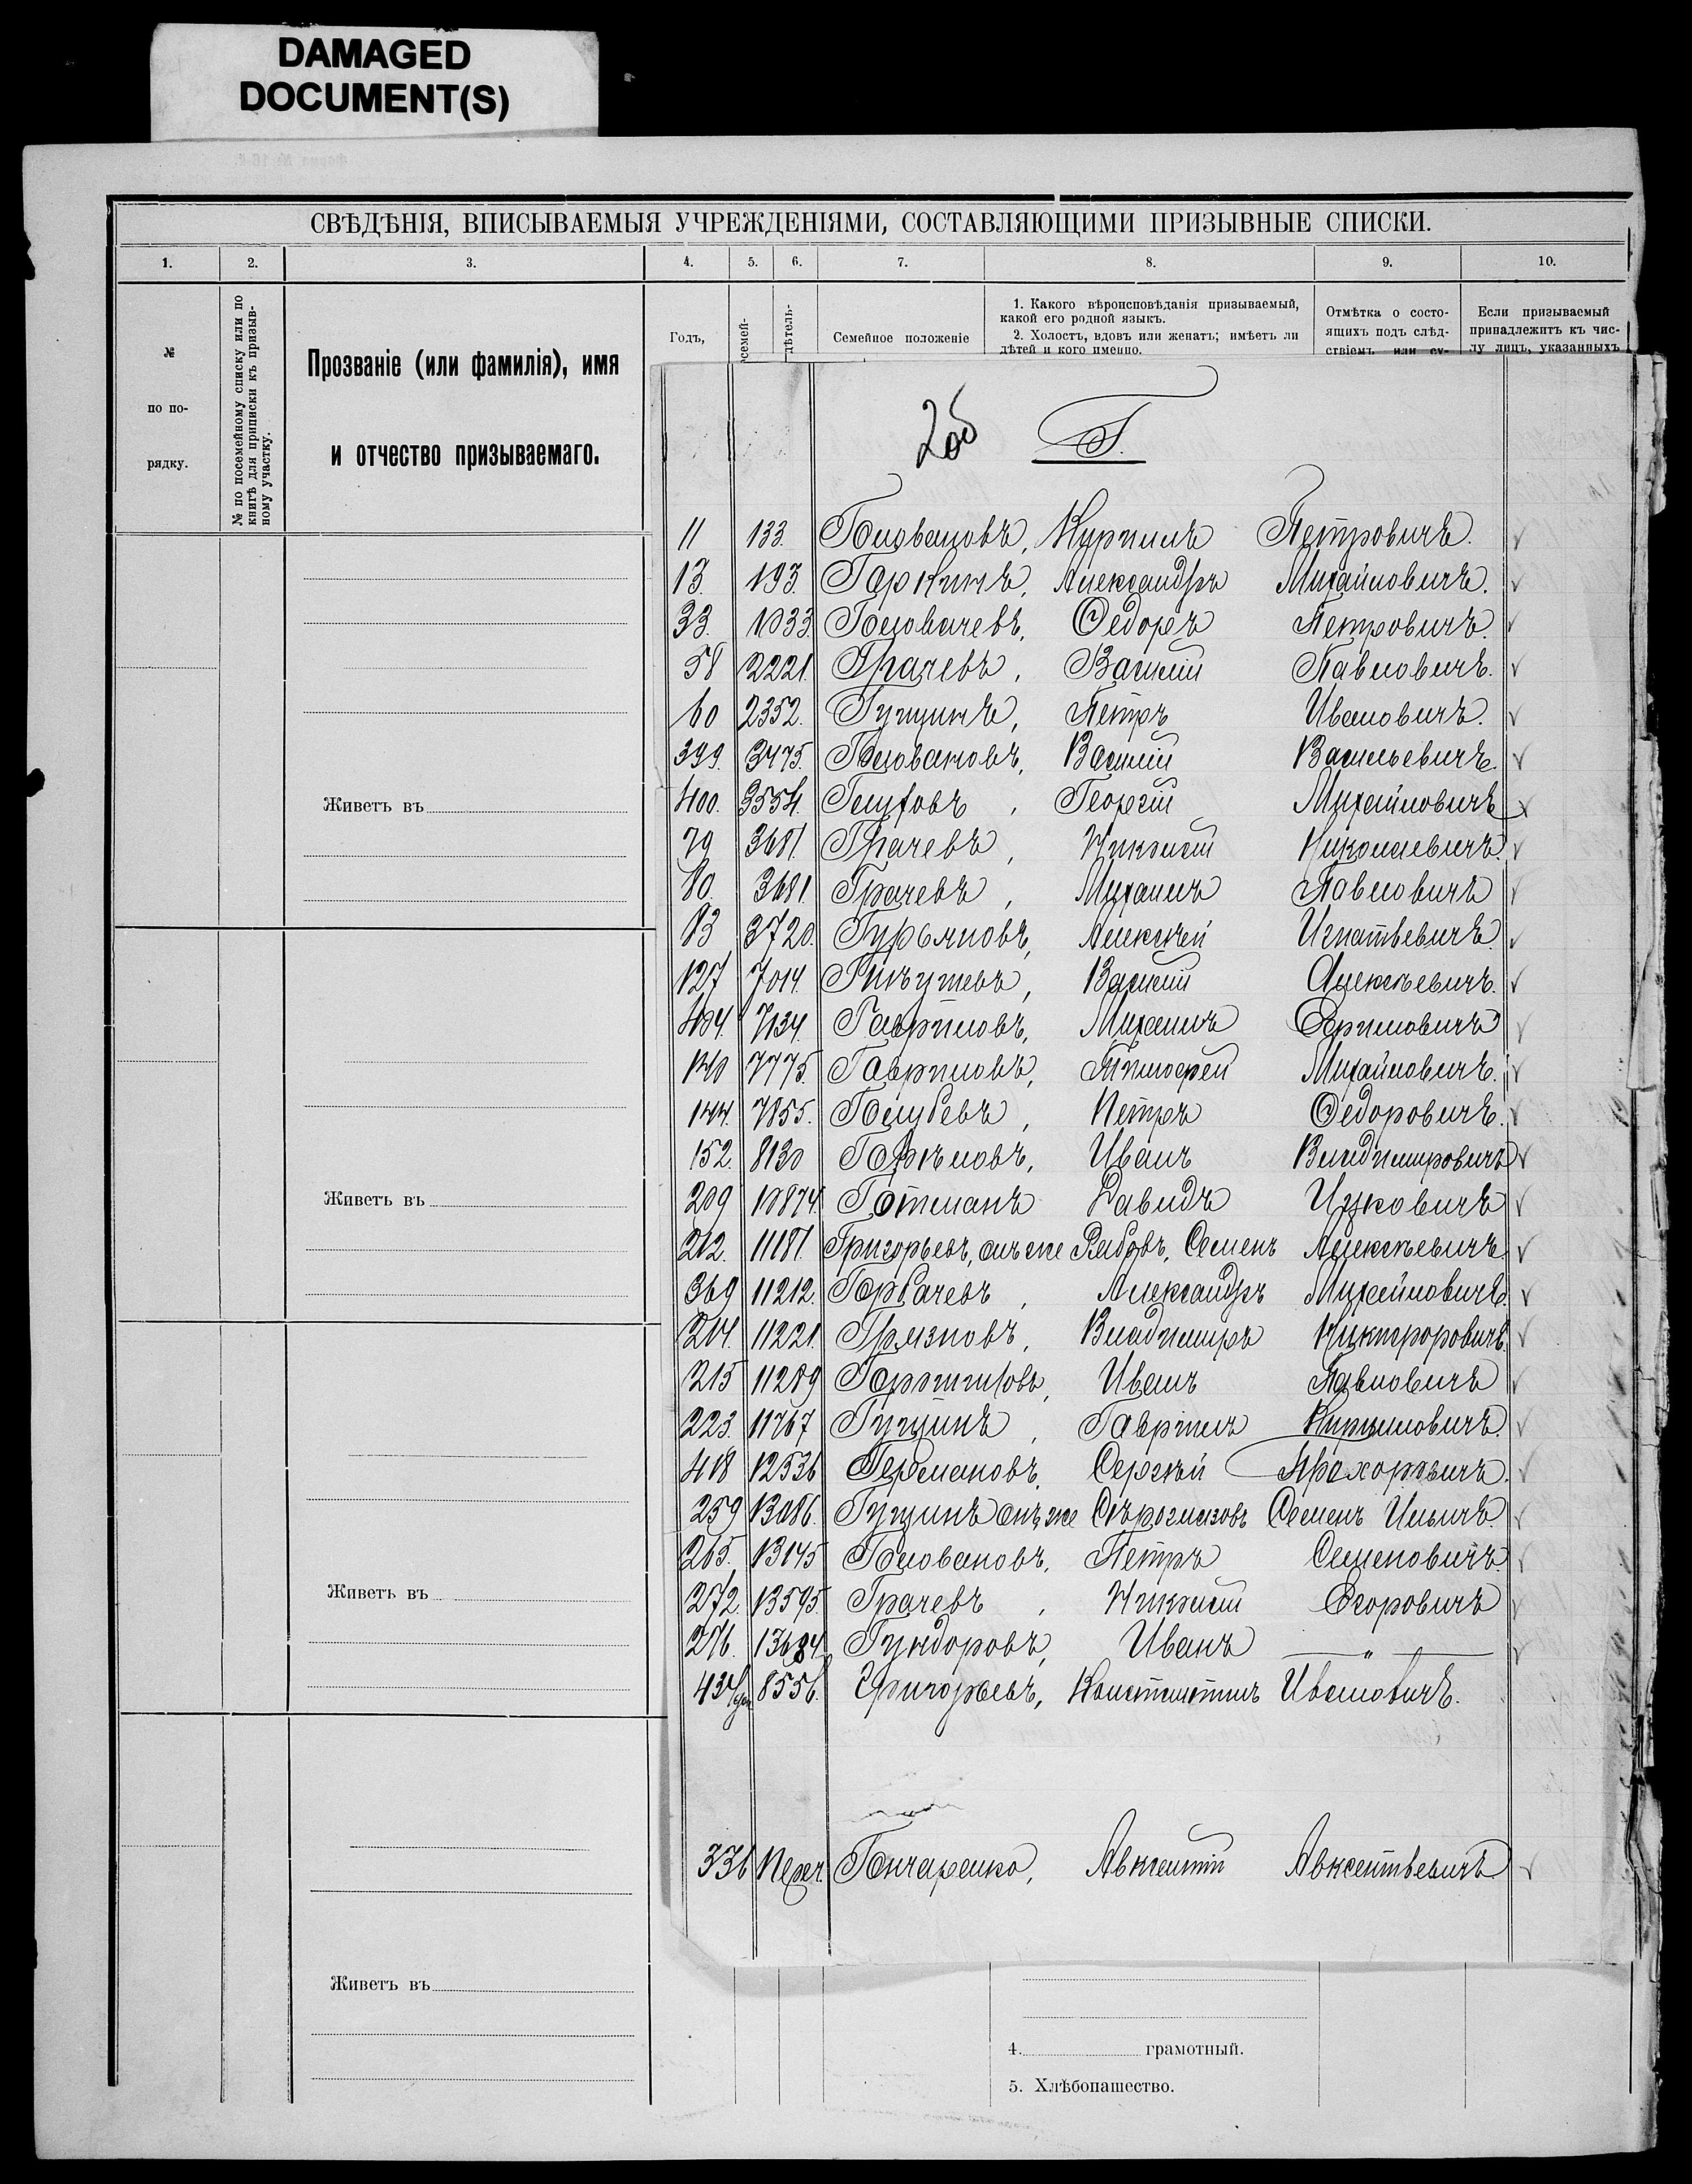 DAMAGED
DOCUMENT(S)
СВѢДѢНІЯ, ВПИСЫВАЕМЫЯ УЧРЕЖДЕНІЯМИ, СОСТАВЛЯЮЩИМИ ПРИЗЫВНЫЕ СПИСКИ.
1. 2. 3. 4. 5. 6. 7. 8. 9. 10.
№
по по-
рядку.
№ по посемейному списку или по
книгѣ для приписки къ призыв-
ному участку.
Прозваніе (или фамилія), имя
и отчество призываемаго.
Годъ,
семей-
дѣтель-
Семейное положеніе
1. Какого вѣроисповѣданія призываемый,
какой его родной языкъ.
2. Холостъ, вдовъ или женатъ; имѣетъ ли
дѣтей и кого именно.
Отмѣтка о состо-
ящихъ подъ слѣд-
ствіемъ или су-
Если призываемый
принадлежитъ къ чис-
лу лицъ, указанныхъ
Г.
11 133. Головановъ, Кирилъ Петровичъ.
13. 193. Гаркинъ, Александръ Михайловичъ.
33. 1033. Головачевъ, Федоръ Петровичъ.
58 2221. Грачевъ, Василій Павловичъ.
60 2352. Гущинъ, Петръ Ивановичъ.
399. 3475. Головановъ, Василій Васильевичъ.
400. 3554. Глуховъ, Георгій Михайловичъ
79 3681. Грачевъ, Николай Николаевичъ.
80. 3681. Грачевъ, Михаилъ Павловичъ
83 3720. Гурьяновъ, Алексѣй Игнатьевичъ.
127 7014. Василій Алексѣевичъ.
404. 7134. Гавриловъ, Михаилъ
140 7775. Гавриловъ, Тимофей Михайловичъ.
144. 7855. Голубевъ, Петръ Федоровичъ.
152. 8130 Горѣловъ, Иванъ Владимировичъ
209 10874. Готманъ Давидъ Ицковичъ
212. 11181. Григорьевъ, онъ же Рябовъ, Семенъ Алексѣевичъ
369 11212. Горбачевъ, Александръ Михайловичъ.
214. 11221. Грязновъ, Владимиръ Никифоровичъ.
215 11289 Иванъ Павловичъ
223. 11767 Гущинъ, Гаврилъ Кириловичъ.
418 12536 Германовъ, Сергѣй Прохоровичъ.
259 13086. Гущинъ онъ же Сѣроглазовъ Семенъ Ильичъ.
265. 13145 Головановъ, Петръ Семеновичъ.
272. 13595. Грачевъ, Николай Егоровичъ
276. 13684. Гундоровъ, Иванъ — " —
434 8556. Григорьевъ, Константинъ Ивановичъ.
336 Переч. Гончаренко, Авксентій Авксентьевичъ
Живетъ въ
Живетъ въ
Живетъ въ
Живетъ въ
4. грамотный.
5. Хлѣбопашество.